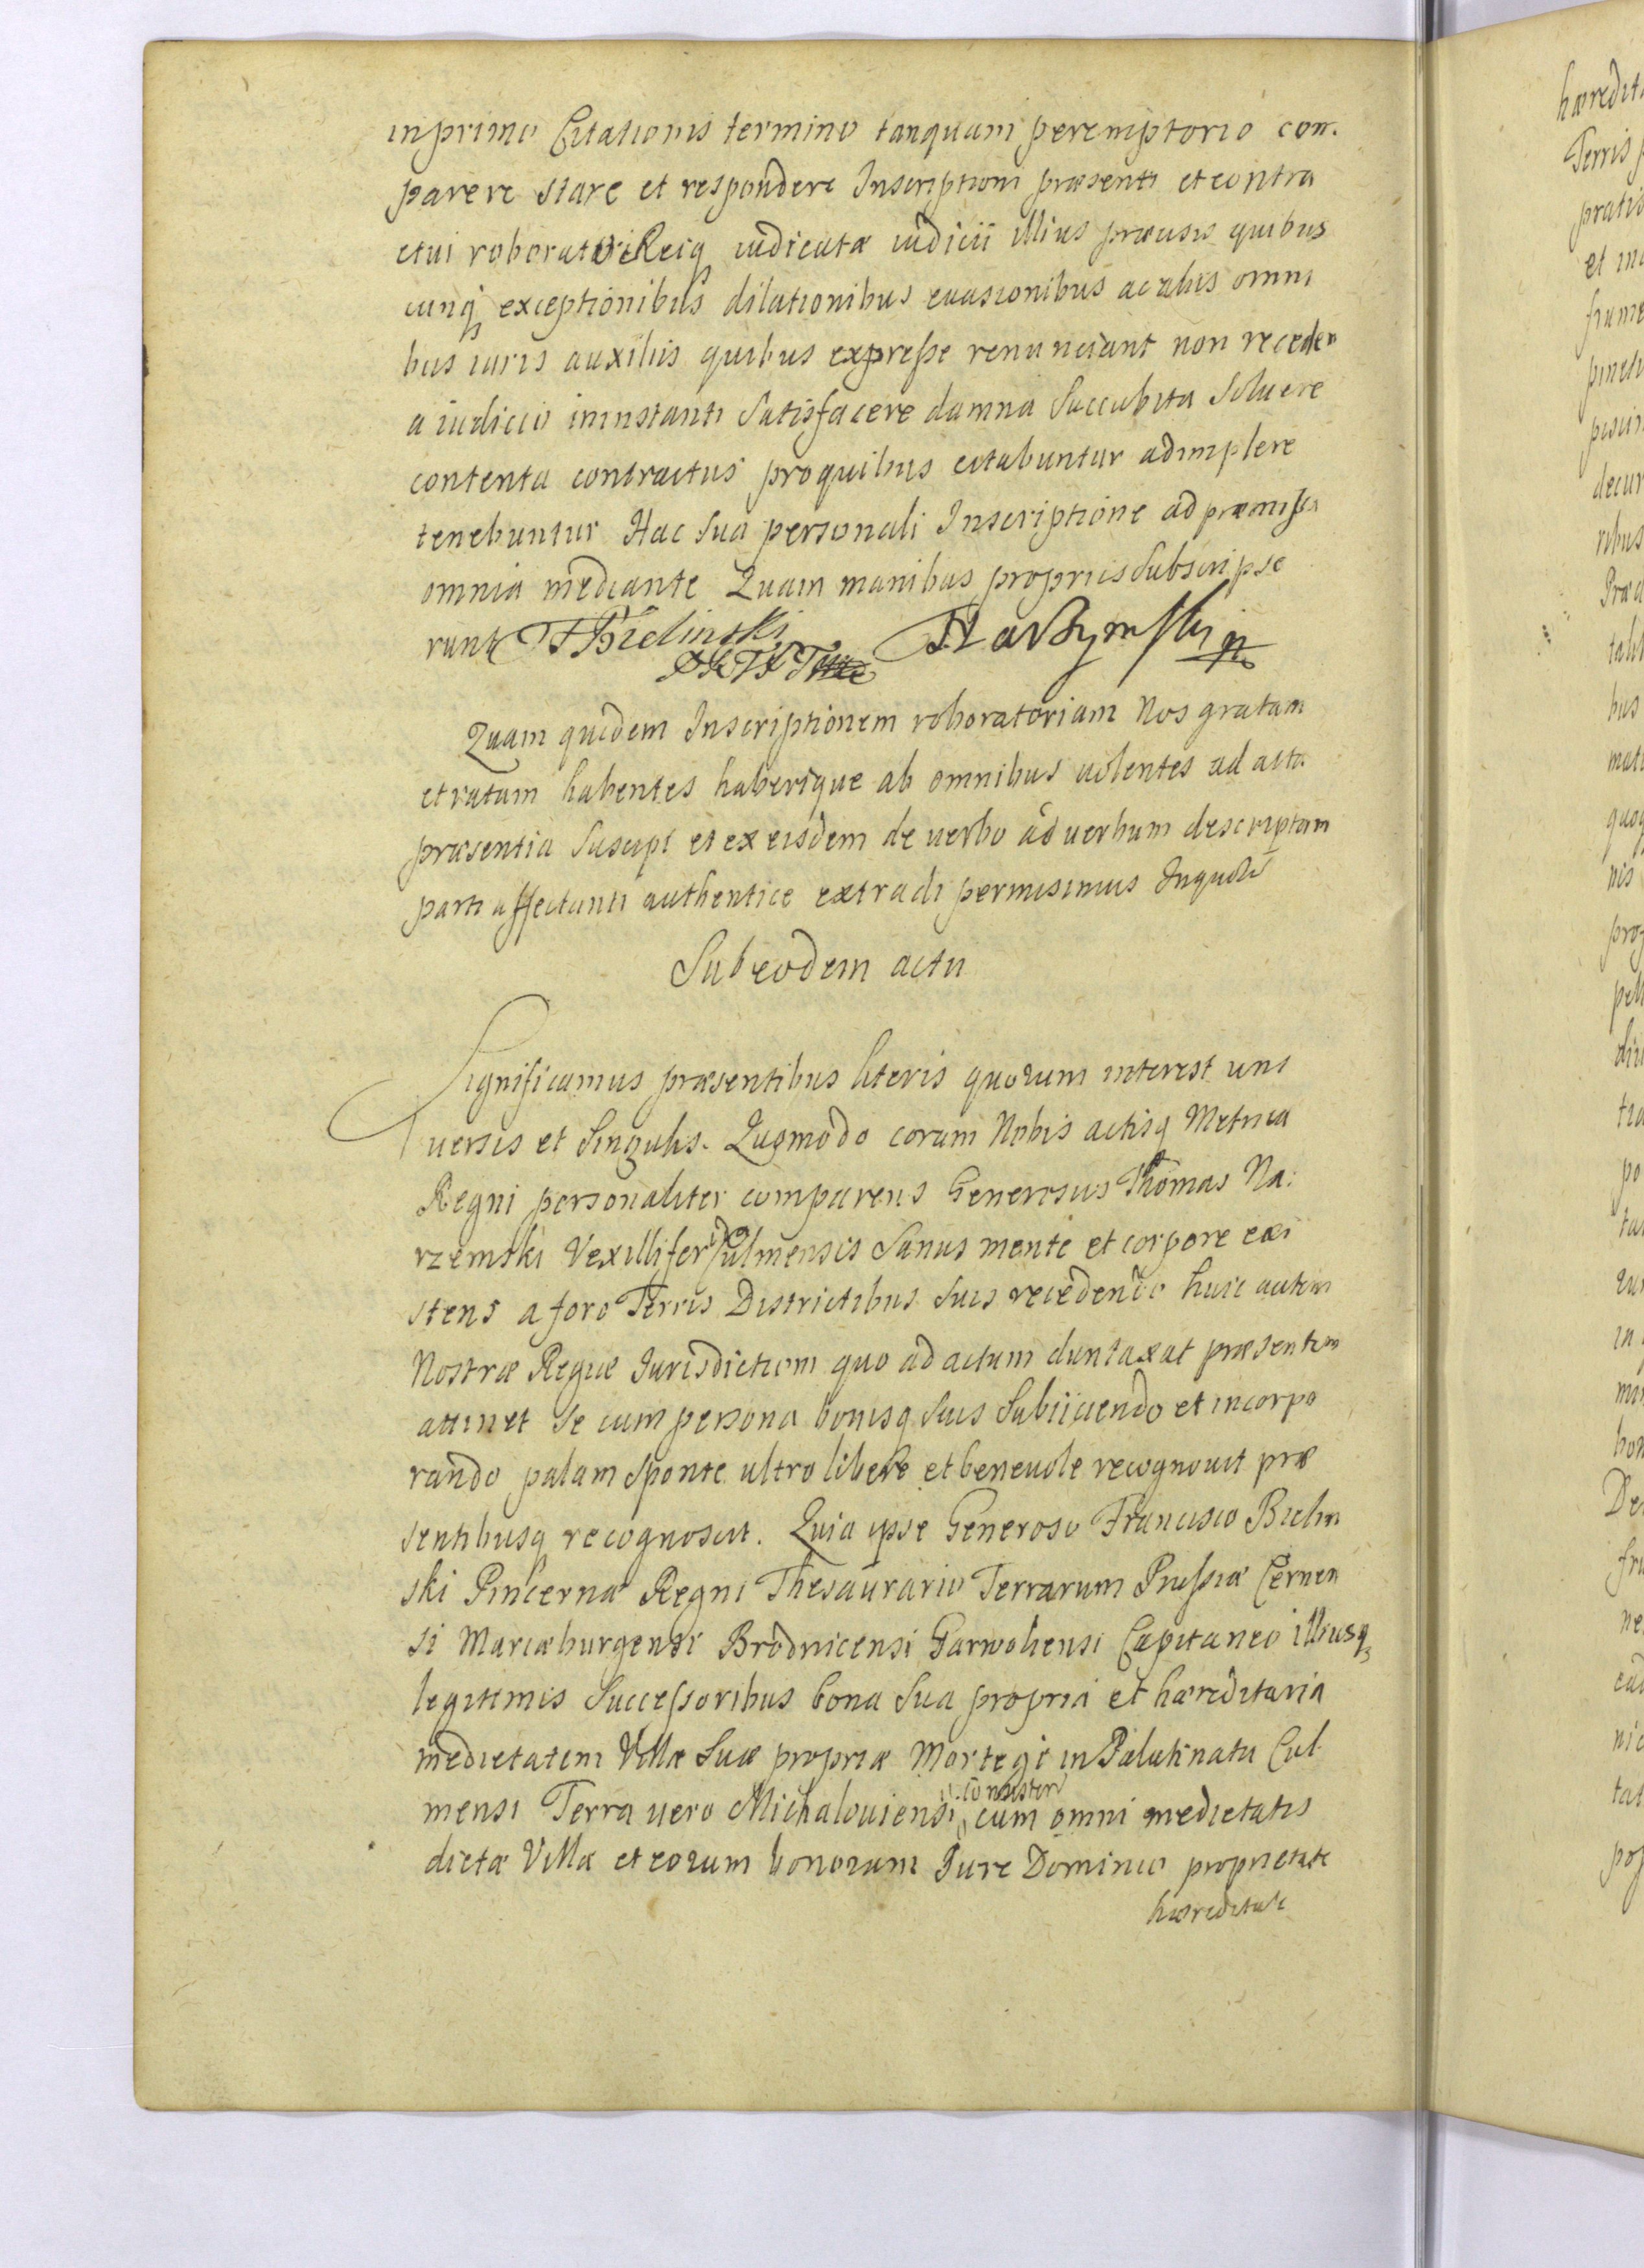 in primo Citationis termino tanquam peremptorio com.
parere stare et respondere Inscriptioni præsenti et contra
ctui roboratori Reiq iudicatæ iudicii illius præcisis quibus
cunq exceptionibus dilationibus euasionibus ac aliis omni
bus iuris auxiliis quibus expresse renunciant non receden
a iudicio in instanti Satisfacere damna Succubita Soluere
contenta contractus pro quibus citabuntur adimplere
tenebuntur Hac Sua personali Inscriptione ad præmissa
omnia mediante Quam manibus propriis Subscripse
runt FBielinski
Quam quidem Inscriptionem roboratoriam Nos gratam
et ratam habentes haberique ab omnibus uolentes ad acta
præsentia Suscipi et ex eisdem de uerbo ad uerbum descriptam
parti affectanti authentice extradi permisimus Inquoru
Sub eodem actu
Significamus præsentibus literis quorum interest uni
uersis et Singulis. Quomodo coram Nobis actisq Metrica
Regni personaliter comparens Generosus Thomas Na:
rzemski Vexillifer Culmensis Sanus mente et corpore exi
stens a foro Terris Districtibus Suis recedendo huic autem
Nostræ Regiæ Iurisdictioni quo ad actum duntaxat præsentem
attinet Se cum persona bonisq Suis Subiiciendo et incorpo
rando palam Sponte ultro libere et beneuole recognouit præ
sentibusq recognoscit. Quia ipse Generoso Francisco Bielin
ski Pincernæ Regni Thesaurario Terrarum Prussiæ Cernen
si Mariæburgensi Brodnicensi Garwoliensi Capitaneo illiusq
legitimis Successoribus bona Sua propria et hæreditaria
medietatem Villæ Suæ propriæ Mortegi in Palatinatu Cul
mensi Terra uero Michalouiensi consisten cum omni medietatis
dictæ Villæ et eorum bonorum Iure Dominio proprietate
hæreditate